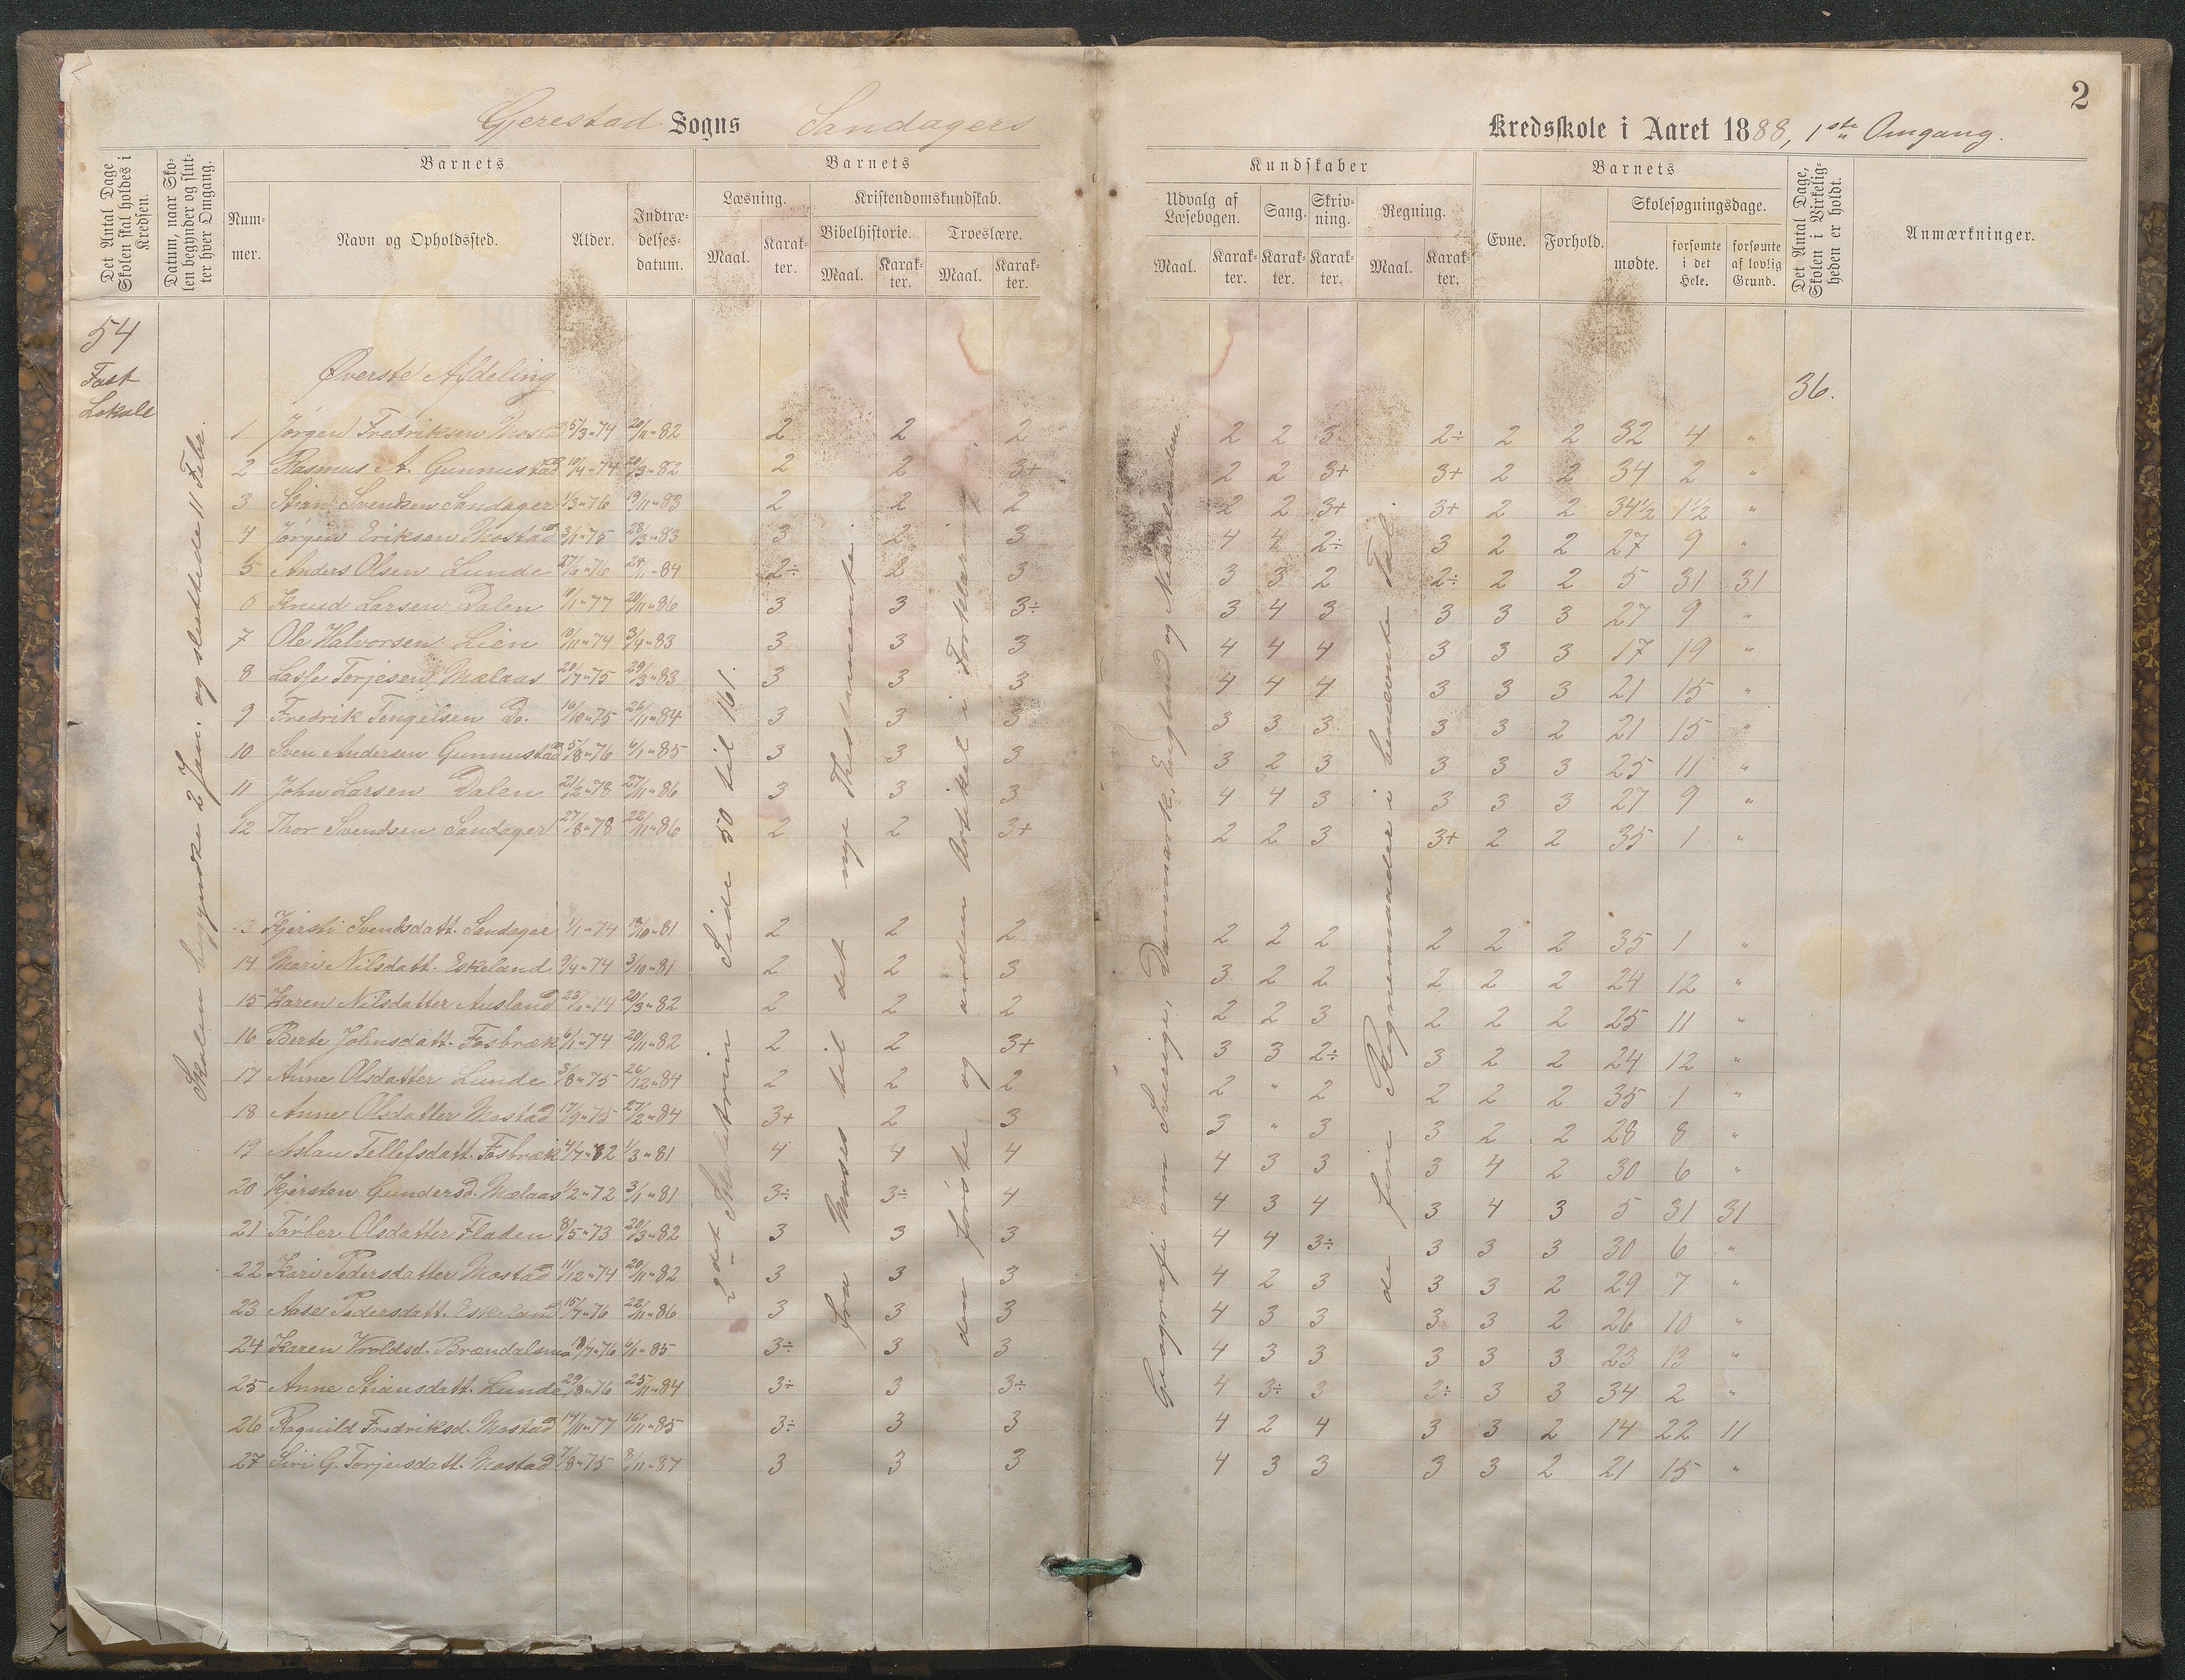 2
Gjerestad Sogns Sandagers Kredsskole i Aaret 1888, 1ste Omgang.
Det Antal Dage Skolen skal holdes i Kredsen.
Datum, naar Skolen begynder og slutter hver Omgang.
Barnets
Nummer.
Navn og Opholdssted.
Alder.
Indtrædelsesdatum.
Barnets
Læsning.
Maal.
Karakter.
Kristendomskundskab.
Bibelhistorie.
Maal.
Karakter.
Troeslære.
Maal.
Karakter.
Kundskaber
Udvalg af Læsebogen.
Maal.
Karakter.
Sang.
Karakter.
Skrivning.
Karakter.
Regning.
Maal.
Karakter.
Barnets
Evne.
Forhold.
Skolesøgningsdage.
mødte.
forsømte i det Hele.
forsømte af lovlig Grund.
Det Antal Dage, Skolen i Virkeligheden er holdt.
Anmærkninger.
54
Fast
Lokale
36.
Skolen begyndte 2 Jan. og sluttede 11 Febr.
Øverste Afdeling
2det Skoletrin Side 50 til 161.
Fra Moses til det nye Thestamente.
den første og anden Artikel i Forklaring
Geografi om Sverige, Danmark, England og Nederlandene
de fire Regnemaader i benævnte Tal.
1 Jørgen Fredriksen Mostad 5/3-74 20/11-82 2 2 2 2 2 3 2÷ 2 2 32 4 "
2 Rasmus A. Gunnustad 10/4-74 20/3-82 2 2 3+ 2 2 3+ 3+ 2 2 34 2 "
3 Stian Svendsen Sandager 1/3-76 19/11-83 2 2 2 2 2 3+ 3+ 2 2 34½ 1½ "
4 Jørgen Eriksen Mostad 3/1-75 28/3-83 3 2 3 4 4 2÷ 3 2 2 27 9 "
5 Anders Olsen Lunde 27/6-76 24/11-84 2÷ 2 3 3 3 2 2÷ 2 2 5 31 31
6 Knud Larsen Dalen 10/1-77 20/11-86 3 3 3÷ 3 4 3 3 3 3 27 9 "
7 Ole Halvorsen Lien 10/11-74 3/4-83 3 3 3 4 4 4 3 3 3 17 19 "
8 Lasse Torjesen Mælaas 20/7-75 29/3-83 3 3 3 4 4 4 3 3 3 21 15 "
9 Fredrik Tengelsen Do. 16/10-75 26/11-84 3 3 3 3 3 3 3 3 2 21 15 "
10 Sven Andersen Gunnustad 5/8-76 6/1-85 3 3 3 3 2 3 3 3 3 25 11 "
11 John Larsen Dalen 21/2-78 27/11-86 3 3 3 4 4 3 3 3 3 27 9 "
12 Thor Svendsen Sandager 27/8-78 22/11-86 2 2 3+ 2 2 3 3+ 2 2 35 1 "
13 Kjersti Svendsdatt. Sandager 1/1-74 13/10-81 2 2 2 2 2 2 2 2 2 35 1 "
14 Mari Nilsdatt. Eskeland 9/4-74 3/10-81 2 2 3 3 2 2 2 2 2 24 12 "
15 Karen Nilsdatter Ausland 20/3-82 2 2 2 2 2 3 2 2 2 25 11 "
16 Berte Johnsdatt. Fosbræk 6/1-74 20/11-82 2 2 3+ 3 3 2÷ 3 2 2 24 12 "
17 Anne Olsdatter Lunde 3/8-75 26/12-84 2 2 2 2 " 2 2 2 2 35 1 "
18 Anne Olsdatter Mostad 17/9-75 27/2-84 3+ 2 3 3 " 3 3 2 2 28 8 "
19 Aslau Tellefsdatt. Fosbræk 4/7-82 1/3-81 4 4 4 4 3 3 3 4 2 30 6 "
20 Kjersten Gundersd. Mælaas 1/2-72 3/1-81 3÷ 3÷ 4 4 3 4 3 4 3 5 31 31
21 Torber Olsdatter Fladen 8/5-73 20/3-82 3 3 3 4 4 3÷ 3 3 3 30 6 "
22 Kari Pedersdatter Mostad 11/12-74 20/11-82 3 3 3 4 2 3 3 3 2 29 7 "
23 Aase Pedersdatt. Eskeland 15/7-76 22/11-86 3 3 3 4 3 3 3 3 2 26 10 "
24 Karen Wroldsd. Brændalsmo 19/7-76 6/1-85 3÷ 3 3 4 3 3 3 3 3 23 13 "
25 Anne Stiansdatt. Lunde 29/8-76 25/11-84 3÷ 3 3÷ 4 3÷ 3 3÷ 3 3 34 2 "
26 Ragnild Fredriksd. Mostad 14/11-77 16/11-85 3÷ 3 3 4 2 4 3 3 2 14 22 11
27 Siri G. Torjusdatt. Mostad 7/8-75 8/11-87 3 3 3 4 3 3 3 3 2 21 15 "